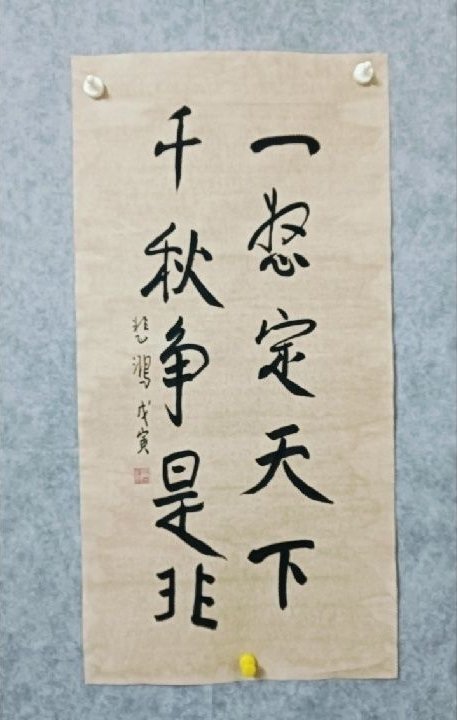 一怒定天下
千秋争是非
悲鸿戊寅